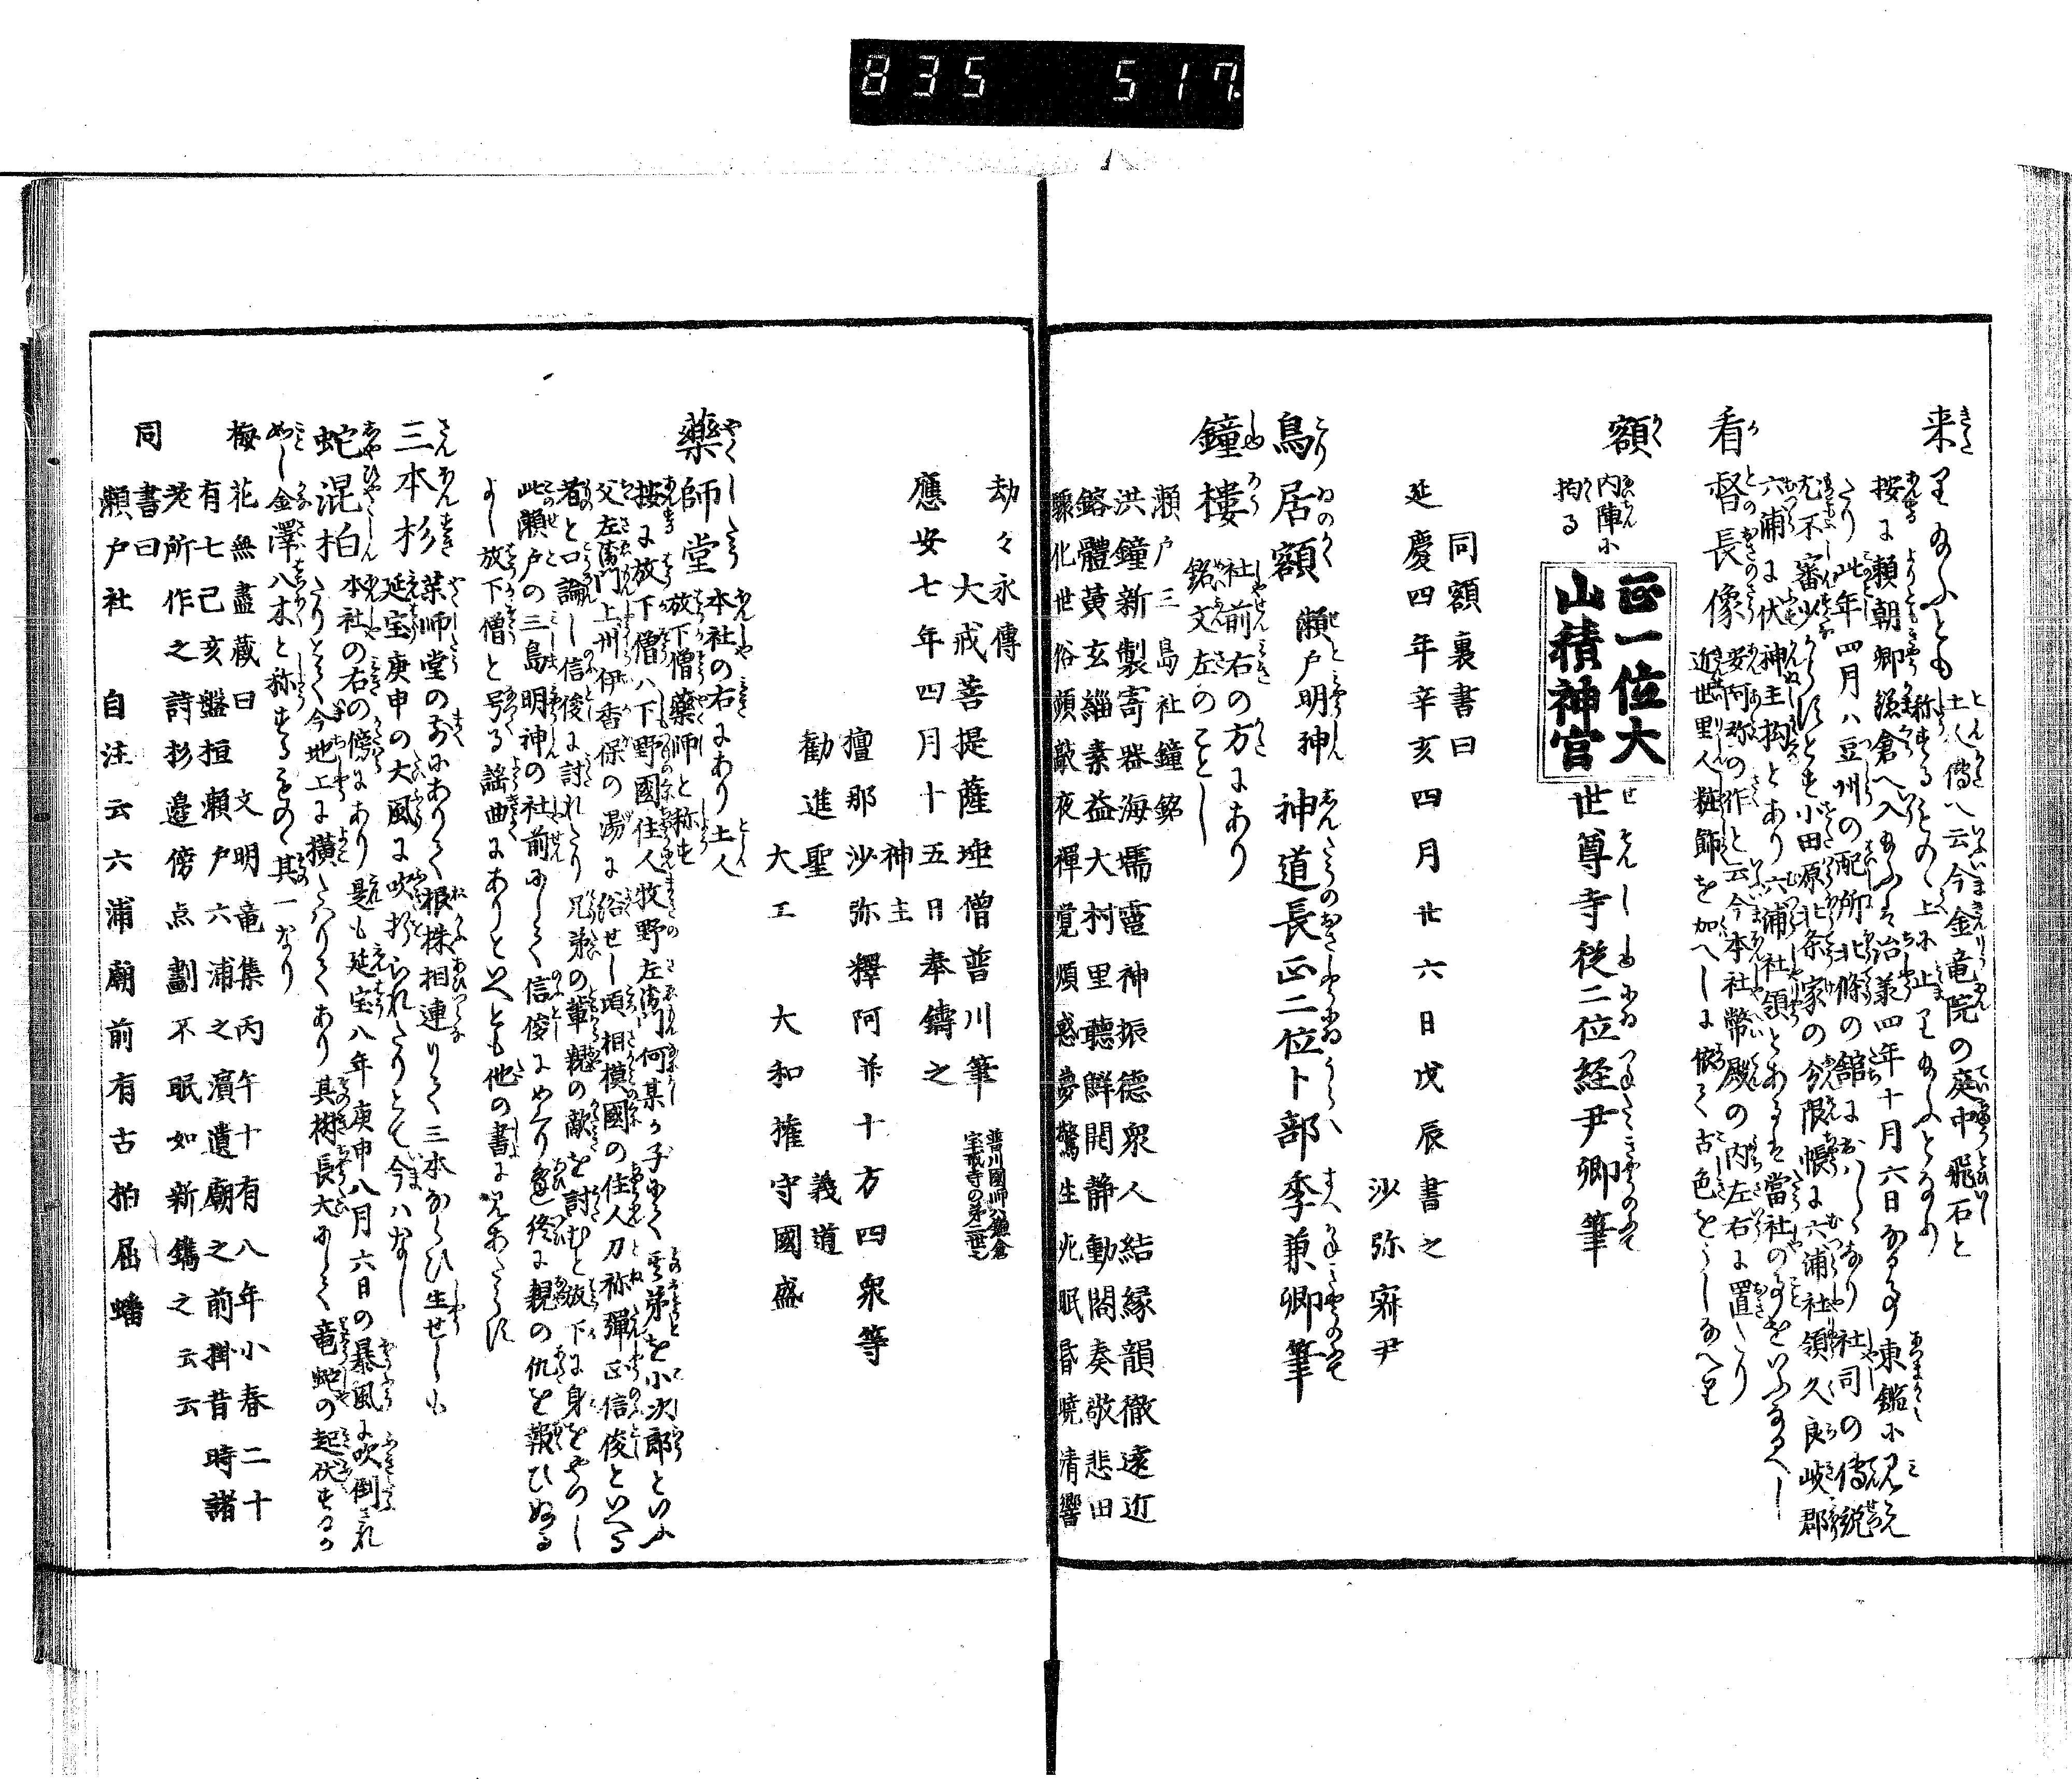 835 517
来り給ふとも称するもの〻上に止り給ふとなり
土人傳へ云今金竜院の庭中飛石と
按に頼朝卿鎌倉へ入給ふは治義四年十月六日なる事東鑑に見え
たり此年四月ハ豆州の配所北條の舘におハしゝなり社司の傳説
尤不審少からすとせ小田原北条家の分限帳に六浦社領久良岐郡
六浦に伏神主松とあり六浦社領とあるは當社の事をいふなるへし
看督長像
安阿弥の作と云今本社幣殿の内左右に置たり
近世里人粧飾を加へしに依て古色をうしなへり
額
内陣に
掲る
正一位大
山積神宮
世尊寺従二位経尹卿筆
同額裏書曰
延慶四年辛亥四月廿六日戊辰書之
沙弥寂尹
鳥居額 瀬戸明神 神道長正二位卜部季兼卿筆
鐘樓 社前右の方にあり
銘文左のことし
瀬戸三島社鐘銘
洪鐘新製寄器海壖霊神振德衆人結縁韻徹遠近
鎔體黄玄緇素益大村里聽鮮開静動閤奏敬悲田
驟化世俗頻敲夜禪覺煩惑夢驚生死眠昏曉清響
劫々永傳
大戒菩提薩埵僧普川筆
普川國師ハ鎌倉
宝戒寺の第二世也
應安七年四月十五日奉鑄之
神主
檀那沙弥釋阿并十方四衆等
勸進聖 義道
大工 大和権守國盛
藥師堂 本社の右にあり土人
放下僧藥師と称す
按に放下僧ハ下野國住人牧野左衛門何某か子にて其弟を小次郎といふ
父左衛門上州伊香保の湯に浴せし頃相摸國の住人刀祢彈正信俊といへる
者と口論し信俊に討れたり兄弟の輩親の敵を討むと放下に身をやつし
此瀬戸の三島明神の社前にして信俊にめくり逢終に親の仇を報ひぬる
よし放下僧と号る謡曲にありといへとも他の書に見あたらす
三本杉 薬师堂の前にありて根株相連りて三本ならひ生せしも
延宝庚申の大風に吹折られたりとて今ハなし
蛇混柏 本社の右の傍にあり是も延宝八年庚申八月六日の暴風に吹倒され
たりとて今地上に横たハりてあり其樹長大にして竜蛇の起伏するか
如し金澤八木と称するもの〻其一なり
梅花無盡蔵曰 文明竜集丙午十有八年小春二十
有七己亥盤桓瀬戸六浦之濱遺廟之前掛昔時諸
老所作之詩杉邉傍点劃不眠如新鐫之云云
同書曰
瀬戸社 自注云六浦廟前有古柏屈蟠